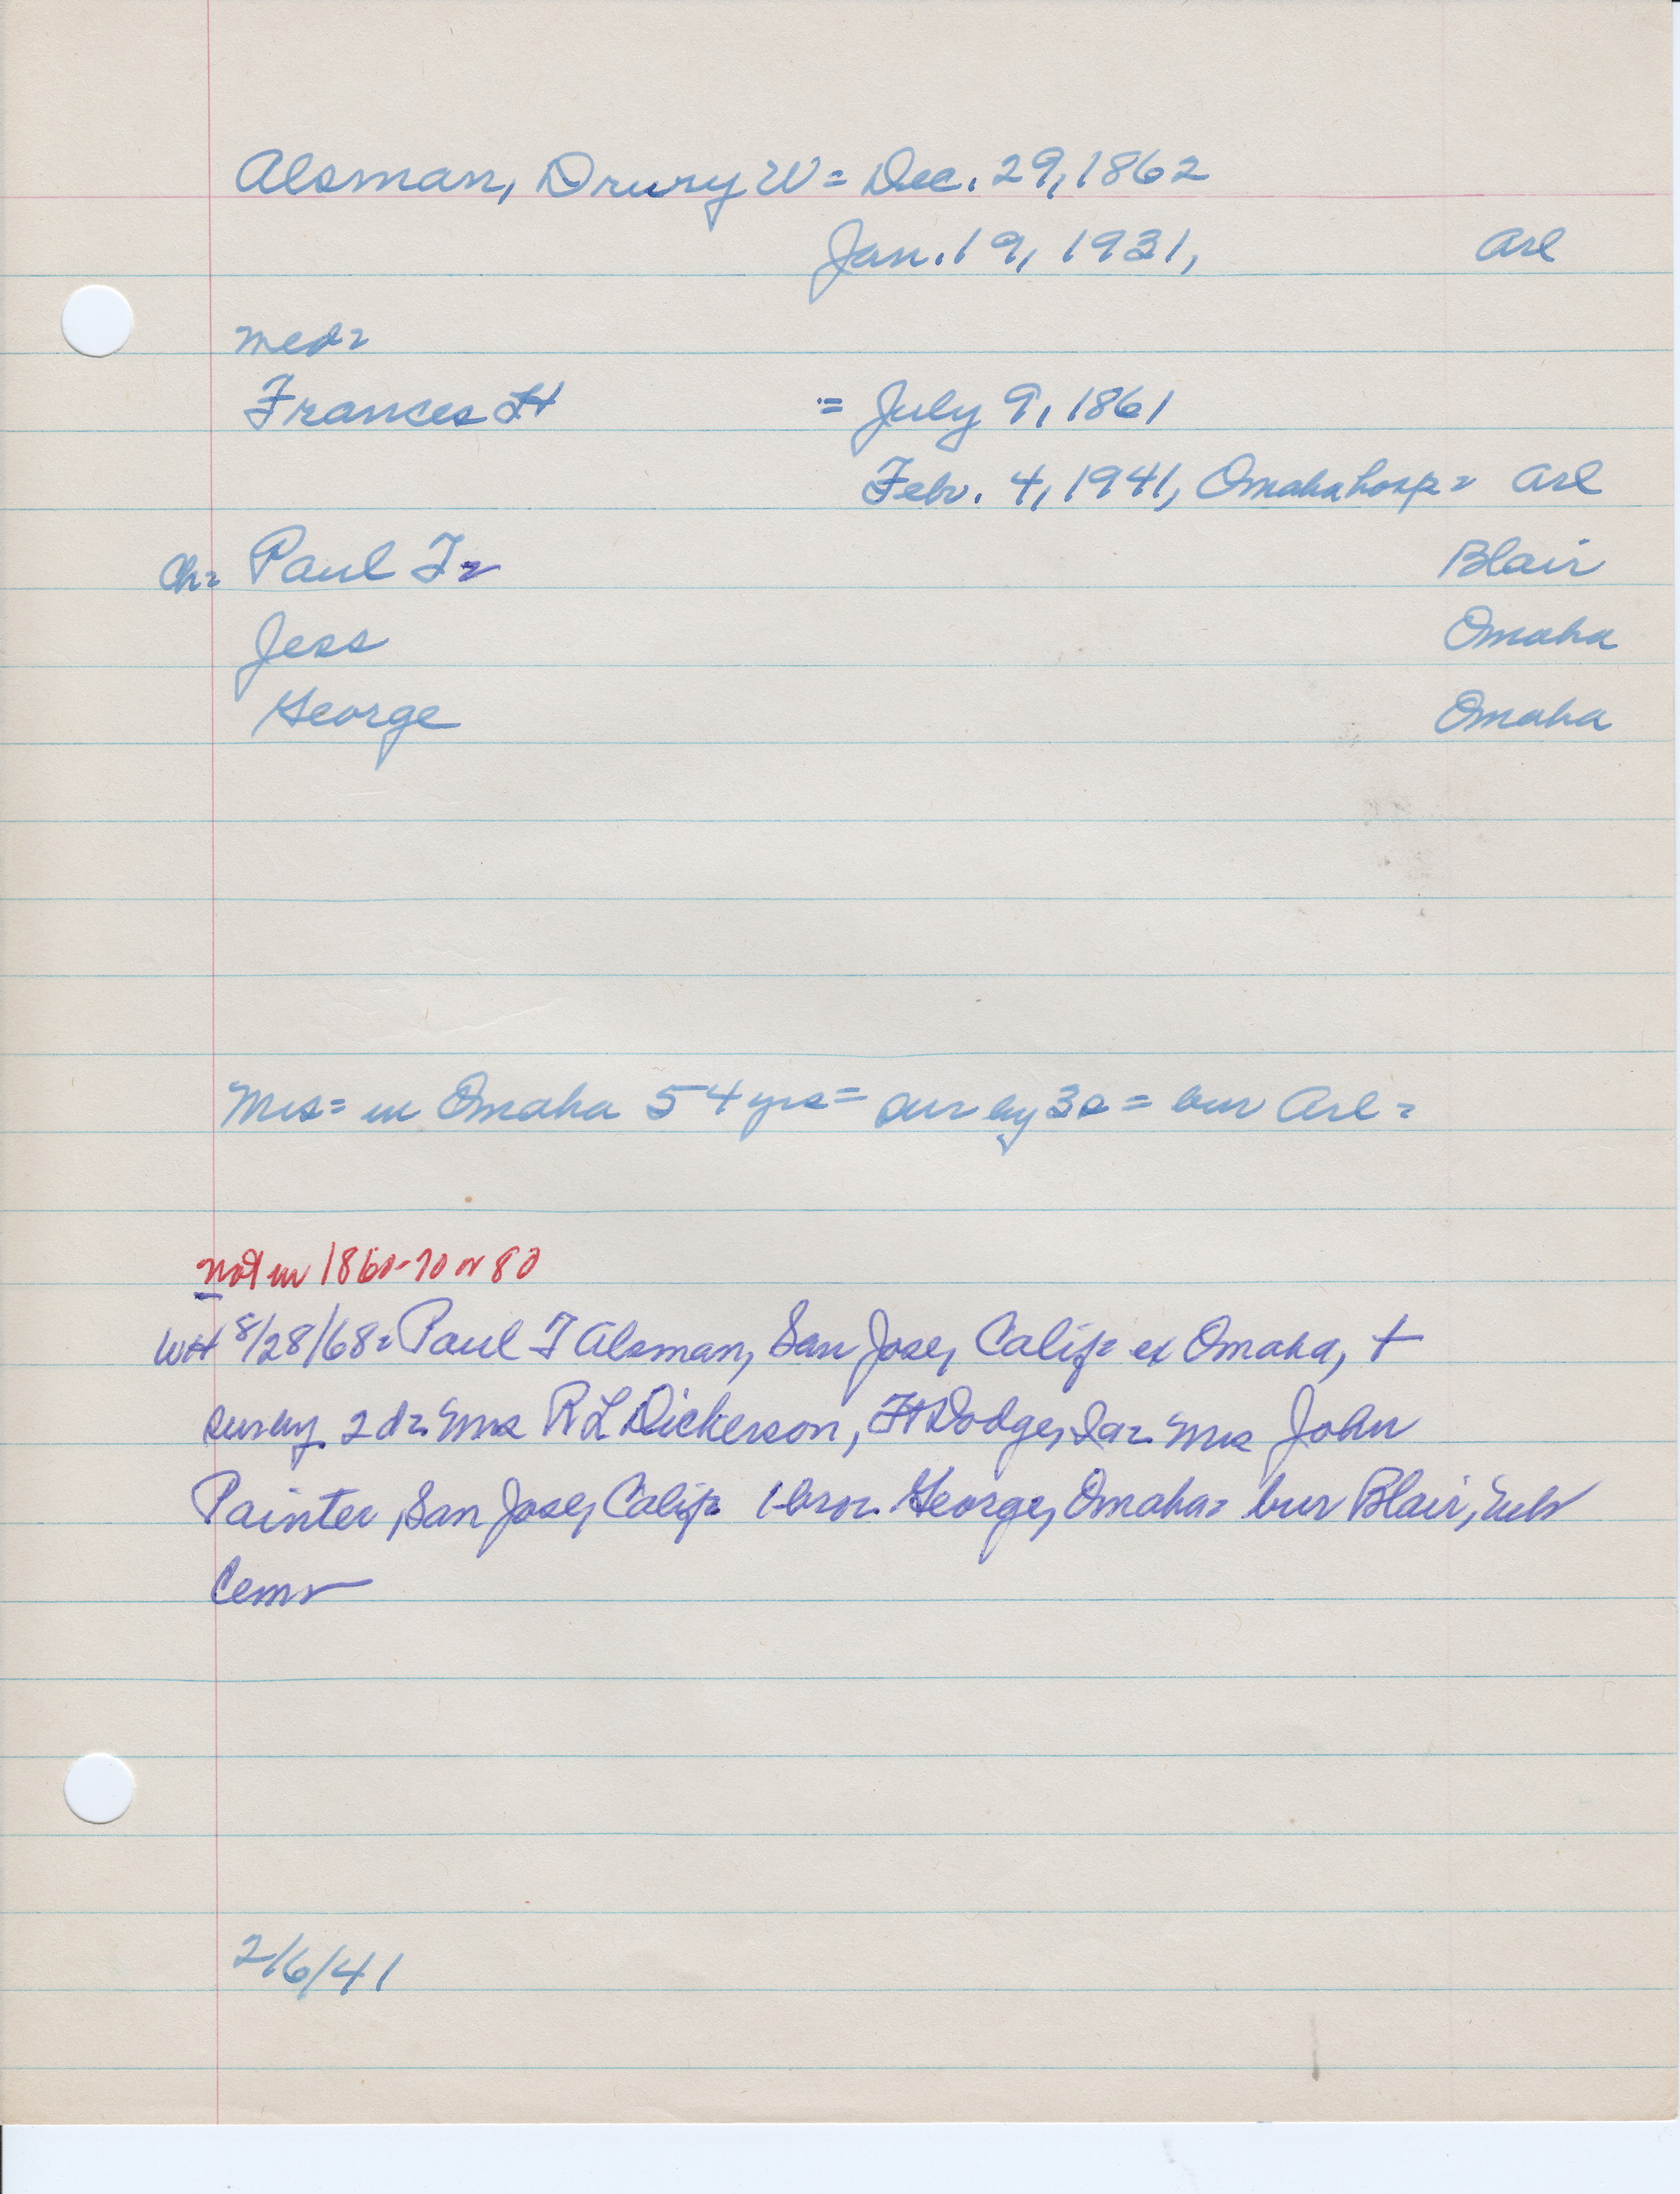 Alsman, Drury W = Dec. 29, 1862
Jan. 19, 1931, Arl
med=
Frances H = July 9, 1861
Febr. 4, 1941, Omaha hosp = Arl
Ch= Paul F= Blair
Jess Omaha
George Omaha
Mrs= in Omaha 54 yrs = sur by 3s = bur Arl =
not in 1860-70 or 80
WH 8/28/68= Paul F Alsman, San Jose, Calif= ex Omaha, +
sur by 2 d= Mrs R L Dickerson, Ft Dodge, Ia= Mrs John
Painter, San Jose, Calif= 1 bro= George, Omaha= bur Blair, Neb
Cem
2/6/41